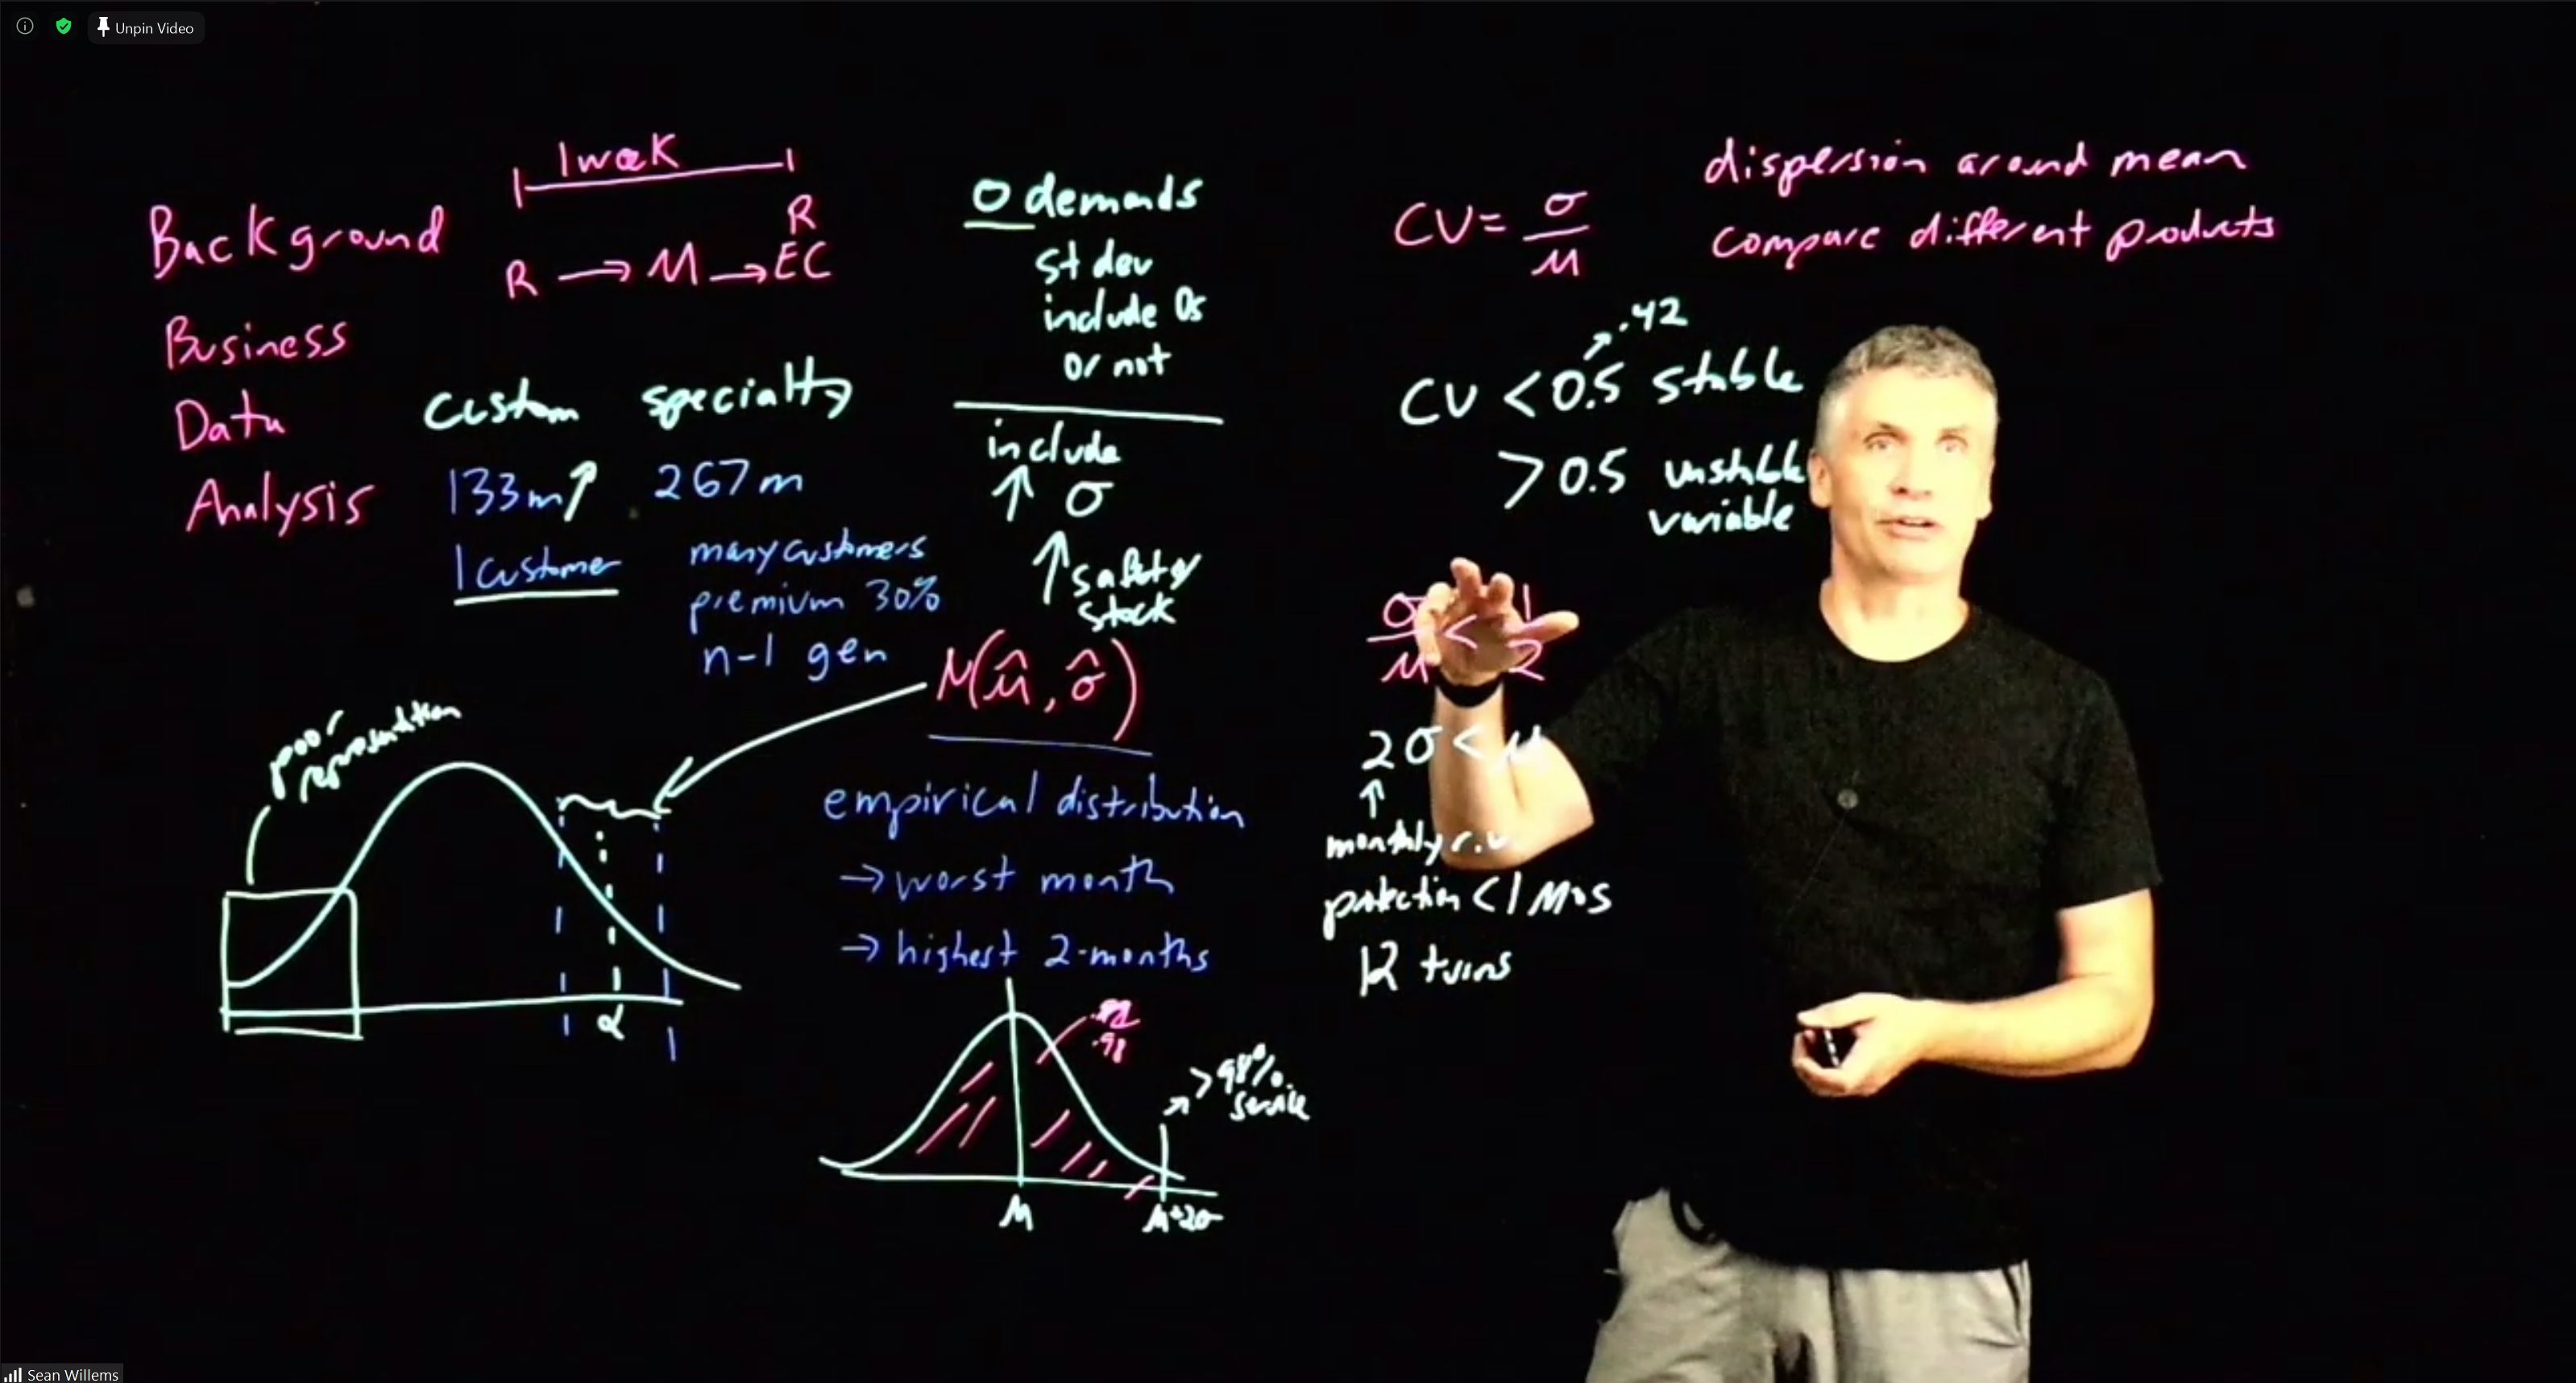 Unpin Video
Background
Business
Data
Analysis
1 week
R
R → M → EC
custom
133m↑
1 customer
specialty
267m
many customers
premium 30%
n-1 gen
0 demands
st dev
include 0s
or not
include
↑ σ
↑ safety
stock
N(μ̂, σ̂)
empirical distribution
→ worst month
→ highest 2-months
poor
representation
α
.98
> 98%
service
μ
μ+2σ
CV = σ/μ
dispersion around mean
compare different products
.42
CV < 0.5 stable
> 0.5 unstable
variable
σ/μ < 1/2
2σ < μ
↑
monthly r.v.
protection < 1 MOS
12 turns
Sean Willems